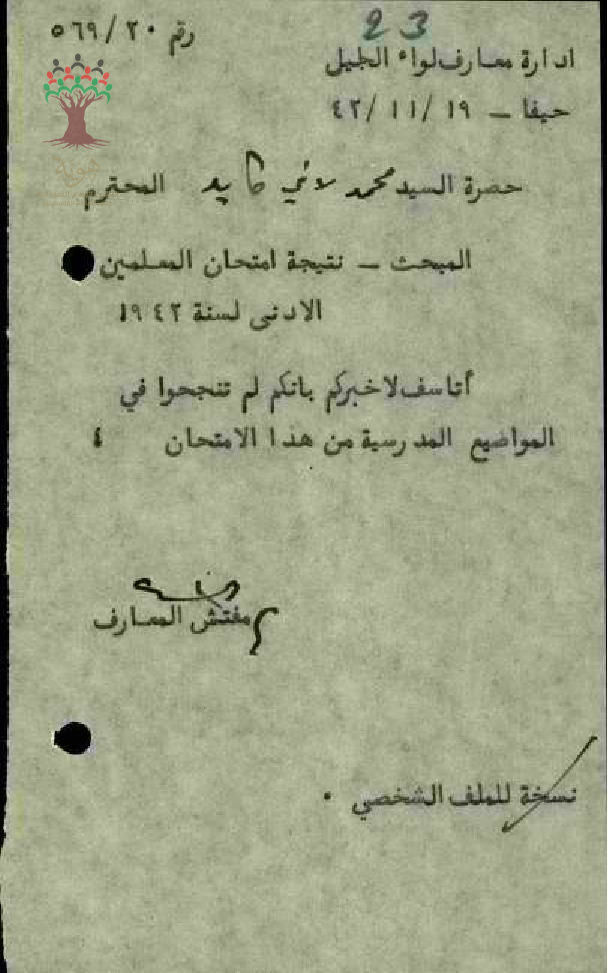 23
رقم ٥٦٩/٢٠
ادارة معارف لواء الجليل
حيفا - ٤٢/١١/١٩
هوية
حضرة السيد محمد كايد المحترم
المبحث - نتيجة امتحان المعلمين
الادنى لسنة ١٩٤٢
أتاسف لاخبركم بانكم لم تنجحوا في
المواضيع المدرسية من هذا الامتحان ٤
مفتش المعارف
نسخة للملف الشخصي .